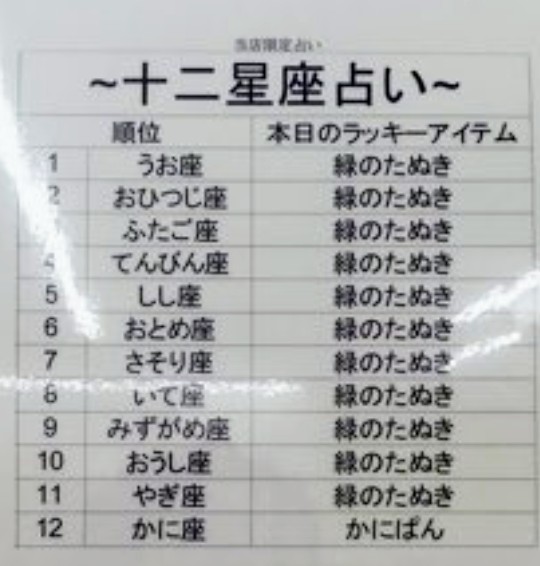 当店限定占い
~十二星座占い~
順位 本日のラッキーアイテム
1 うお座 緑のたぬき
2 おひつじ座 緑のたぬき
3 ふたご座 緑のたぬき
4 てんびん座 緑のたぬき
5 しし座 緑のたぬき
6 おとめ座 緑のたぬき
7 さそり座 緑のたぬき
8 いて座 緑のたぬき
9 みずがめ座 緑のたぬき
10 おうし座 緑のたぬき
11 やぎ座 緑のたぬき
12 かに座 かにぱん